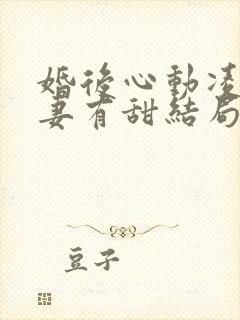 婚後心動凌
妻有甜結局
豆子